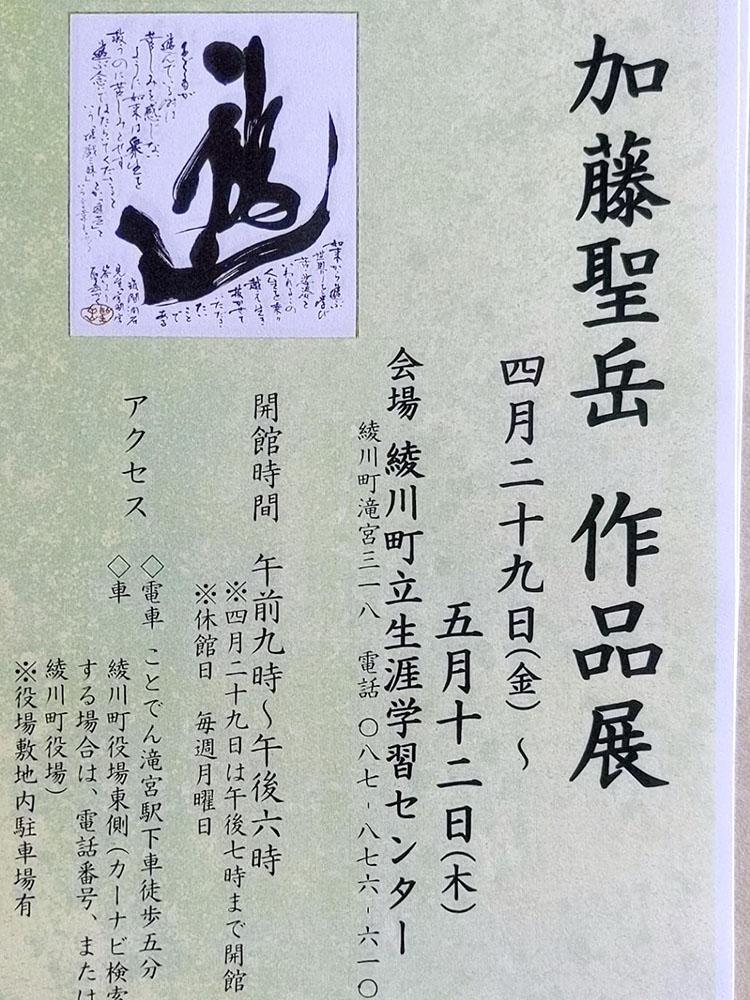 加藤聖岳 作品展
四月二十九日(金)～
五月十二日(木)
会場 綾川町立生涯学習センター
綾川町滝宮三一八 電話 〇八七-八七六-六一〇
開館時間 午前九時～午後六時
※四月二十九日は午後七時まで開館
※休館日 毎週月曜日
アクセス ◇電車 ことでん滝宮駅下車徒歩五分
◇車 綾川町役場東側(カーナビ検索
する場合は、電話番号、または
綾川町役場)
※役場敷地内駐車場有
遊
遊んでいる時は
苦しみを感じない
ように如来は衆生を
救うのに苦しみとせず